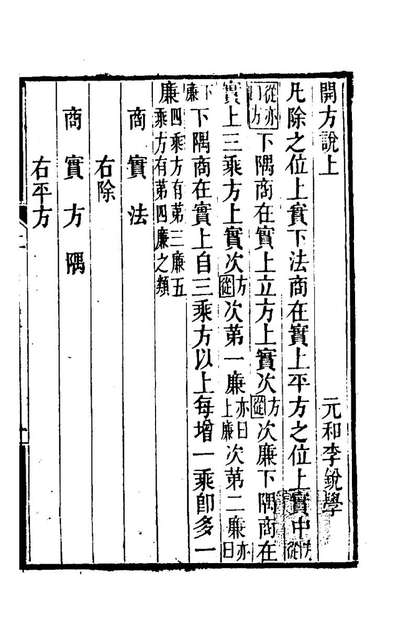 開方說上
元和李銳學
凡除之位上實下法商在實上平方之位上實中方從
亦曰從方下隅商在實上立方上實次方從次廉下隅商在
實上三乘方上實次方從次第一廉亦曰上廉次第二廉亦曰
下廉下隅商在實上自三乘方以上每增一乘卽多一
廉四乘方有第三廉五乘方有第四廉之類
商實法
右除
商實方隅
右平方